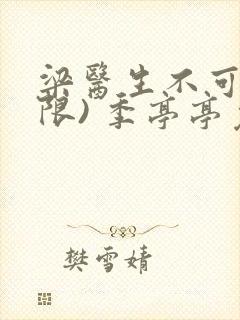 梁醫生不可
限) 季亭亭
樊雪婧